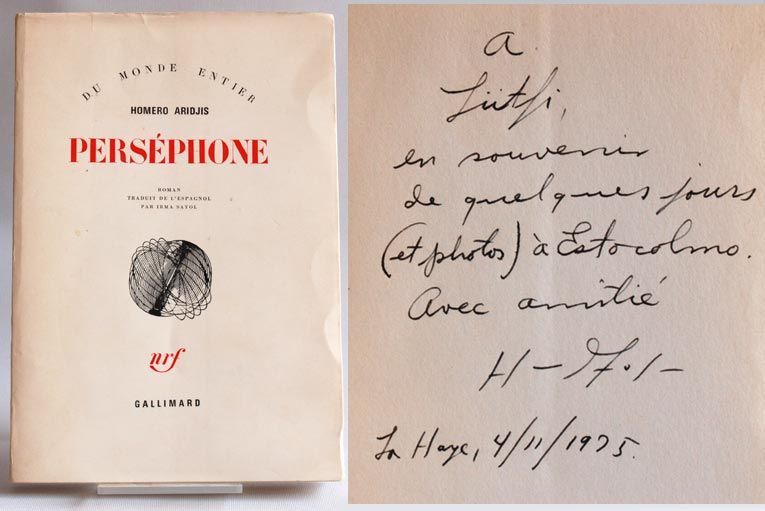 DU MONDE ENTIER
HOMERO ARIDJIS
PERSÉPHONE
ROMAN
TRADUIT DE L'ESPAGNOL
PAR IRMA SAYOL
nrf
GALLIMARD
A
Lütfi,
en souvenir
de quelques jours
(et photos) à Estocolmo.
Avec amitié
La Haye, 4/11/1975.